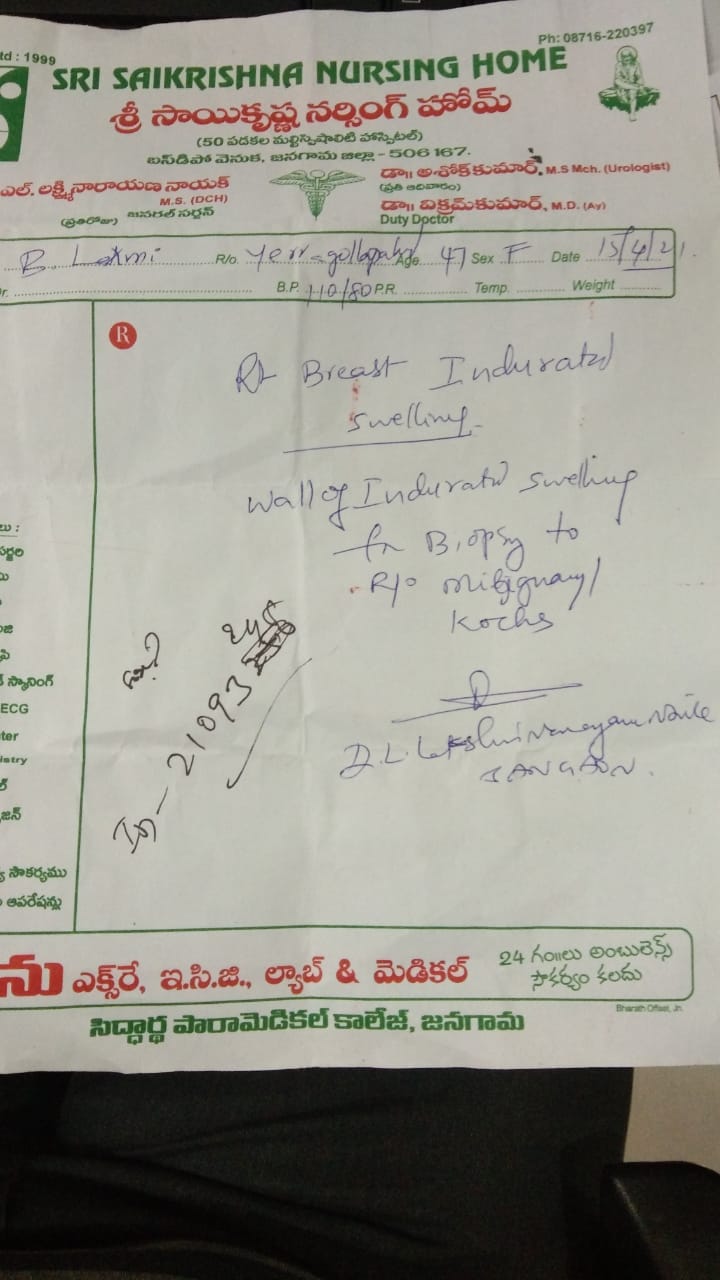 td : 1999
Ph: 08716-220397
SRI SAIKRISHNA NURSING HOME
శ్రీ సాయికృష్ణ నర్సింగ్ హోమ్
(50 పడకల మల్టిస్పెషాలిటి హాస్పిటల్)
బస్‌డిపో వెనుక, జనగామ జిల్లా - 506 167.
ఎల్. లక్ష్మీనారాయణ నాయక్
M.S. (DCH)
(ప్రతిరోజు) జనరల్ సర్జన్
డా॥ అశోక్‌కుమార్, M.S Mch. (Urologist)
(ప్రతి ఆదివారం)
డా॥ విక్రమ్‌కుమార్, M.D. (Ay)
Duty Doctor
B. Laxmi R/o. Age 47 Sex F Date 15/4/21
B.P. 110/80 P.R. Temp. Weight
R
Rt Breast Indurated
swelling
Wall of Indurated swelling
for Biopsy to
R/o
Kochs
21093
JANGAON.
లు :
స్కానింగ్
ECG
ter
istry
సౌకర్యము
ఆపరేషన్లు
ను ఎక్స్‌రే, ఇ.సి.జి., ల్యాబ్ & మెడికల్
24 గం॥లు అంబులెన్స్
సౌకర్యం కలదు
సిద్ధార్థ పారామెడికల్ కాలేజ్, జనగామ
Bharath Offset, Jn.